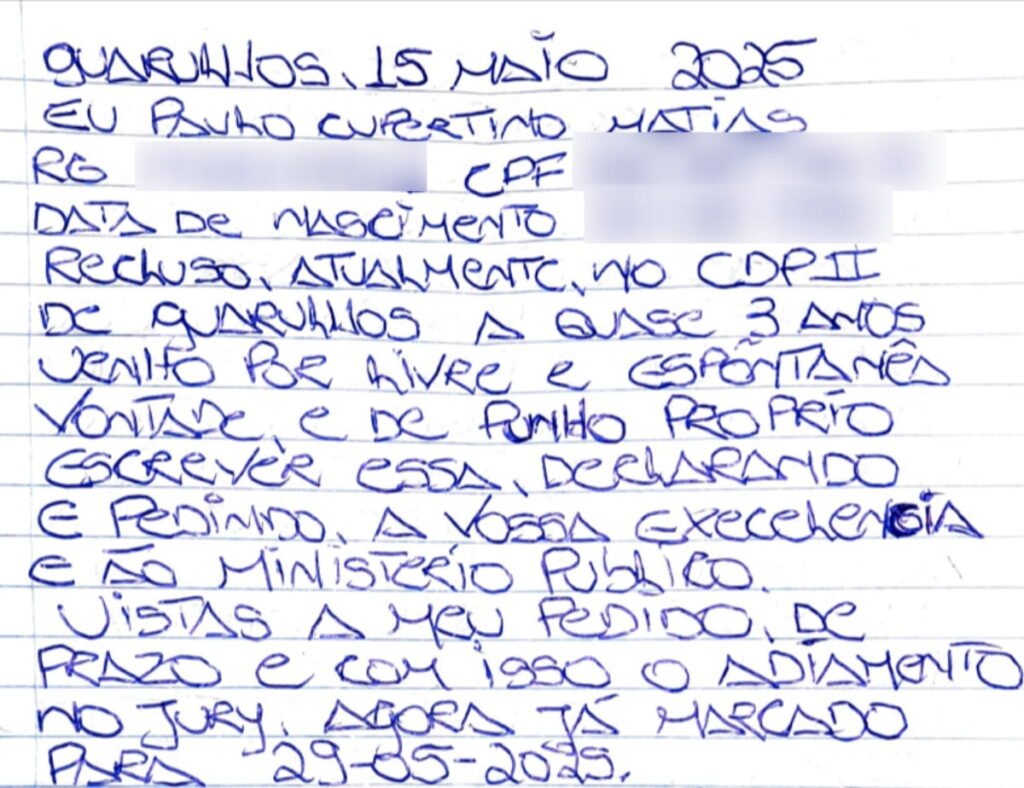 GUARULHOS, 15 MAIO 2025
EU PAULO CUPERTINO MATIAS
RG CPF
DATA DE NASCIMENTO
RECLUSO, ATUALMENTE, NO CDPII
DE GUARULHOS A QUASE 3 ANOS
VENHO POR LIVRE E ESPÔNTANÊA
VONTADE, E DE PUNHO PROPRIO
ESCREVER ESSA, DECLARANDO
E PEDINDO, A VOSSA EXECELENSIA
E ÃO MINISTERIO PUBLICO.
VISTAS A MEU PEDIDO, DE
PRAZO E COM ISSO O ADIAMENTO
NO JURY, AGORA JÁ MARCADO
PARA 29-05-2025.